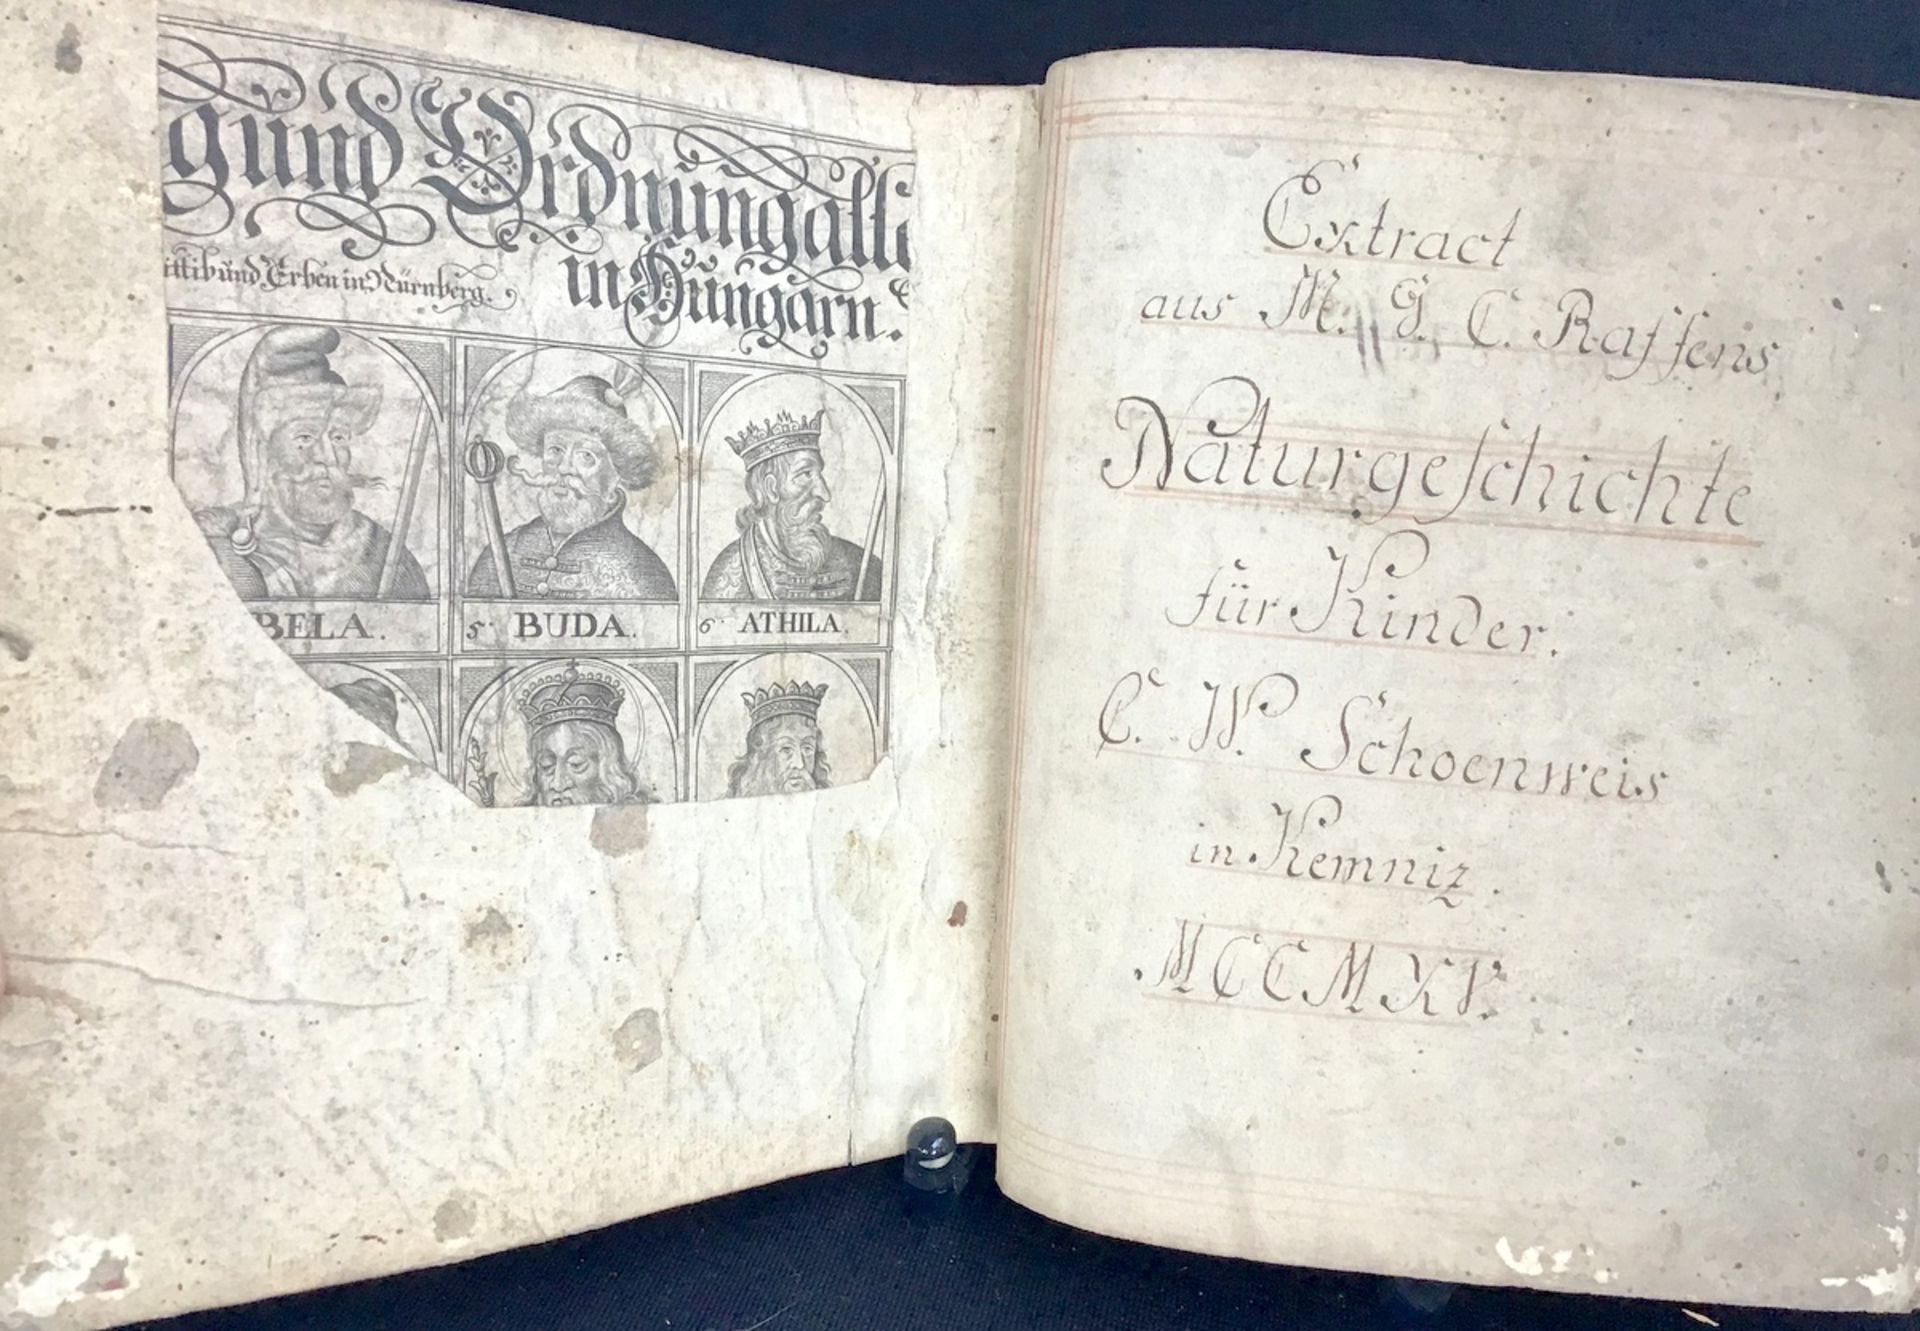 gund Ordnung alle
ittib und Erben in Nürnberg.
in Hungarn.
BELA.
5. BUDA.
6. ATHILA.
Extract
aus M. G. C. Raffens
Naturgeſchichte
für Kinder.
C. W. Schoenweis
in Kemniz.
MCCMXV.